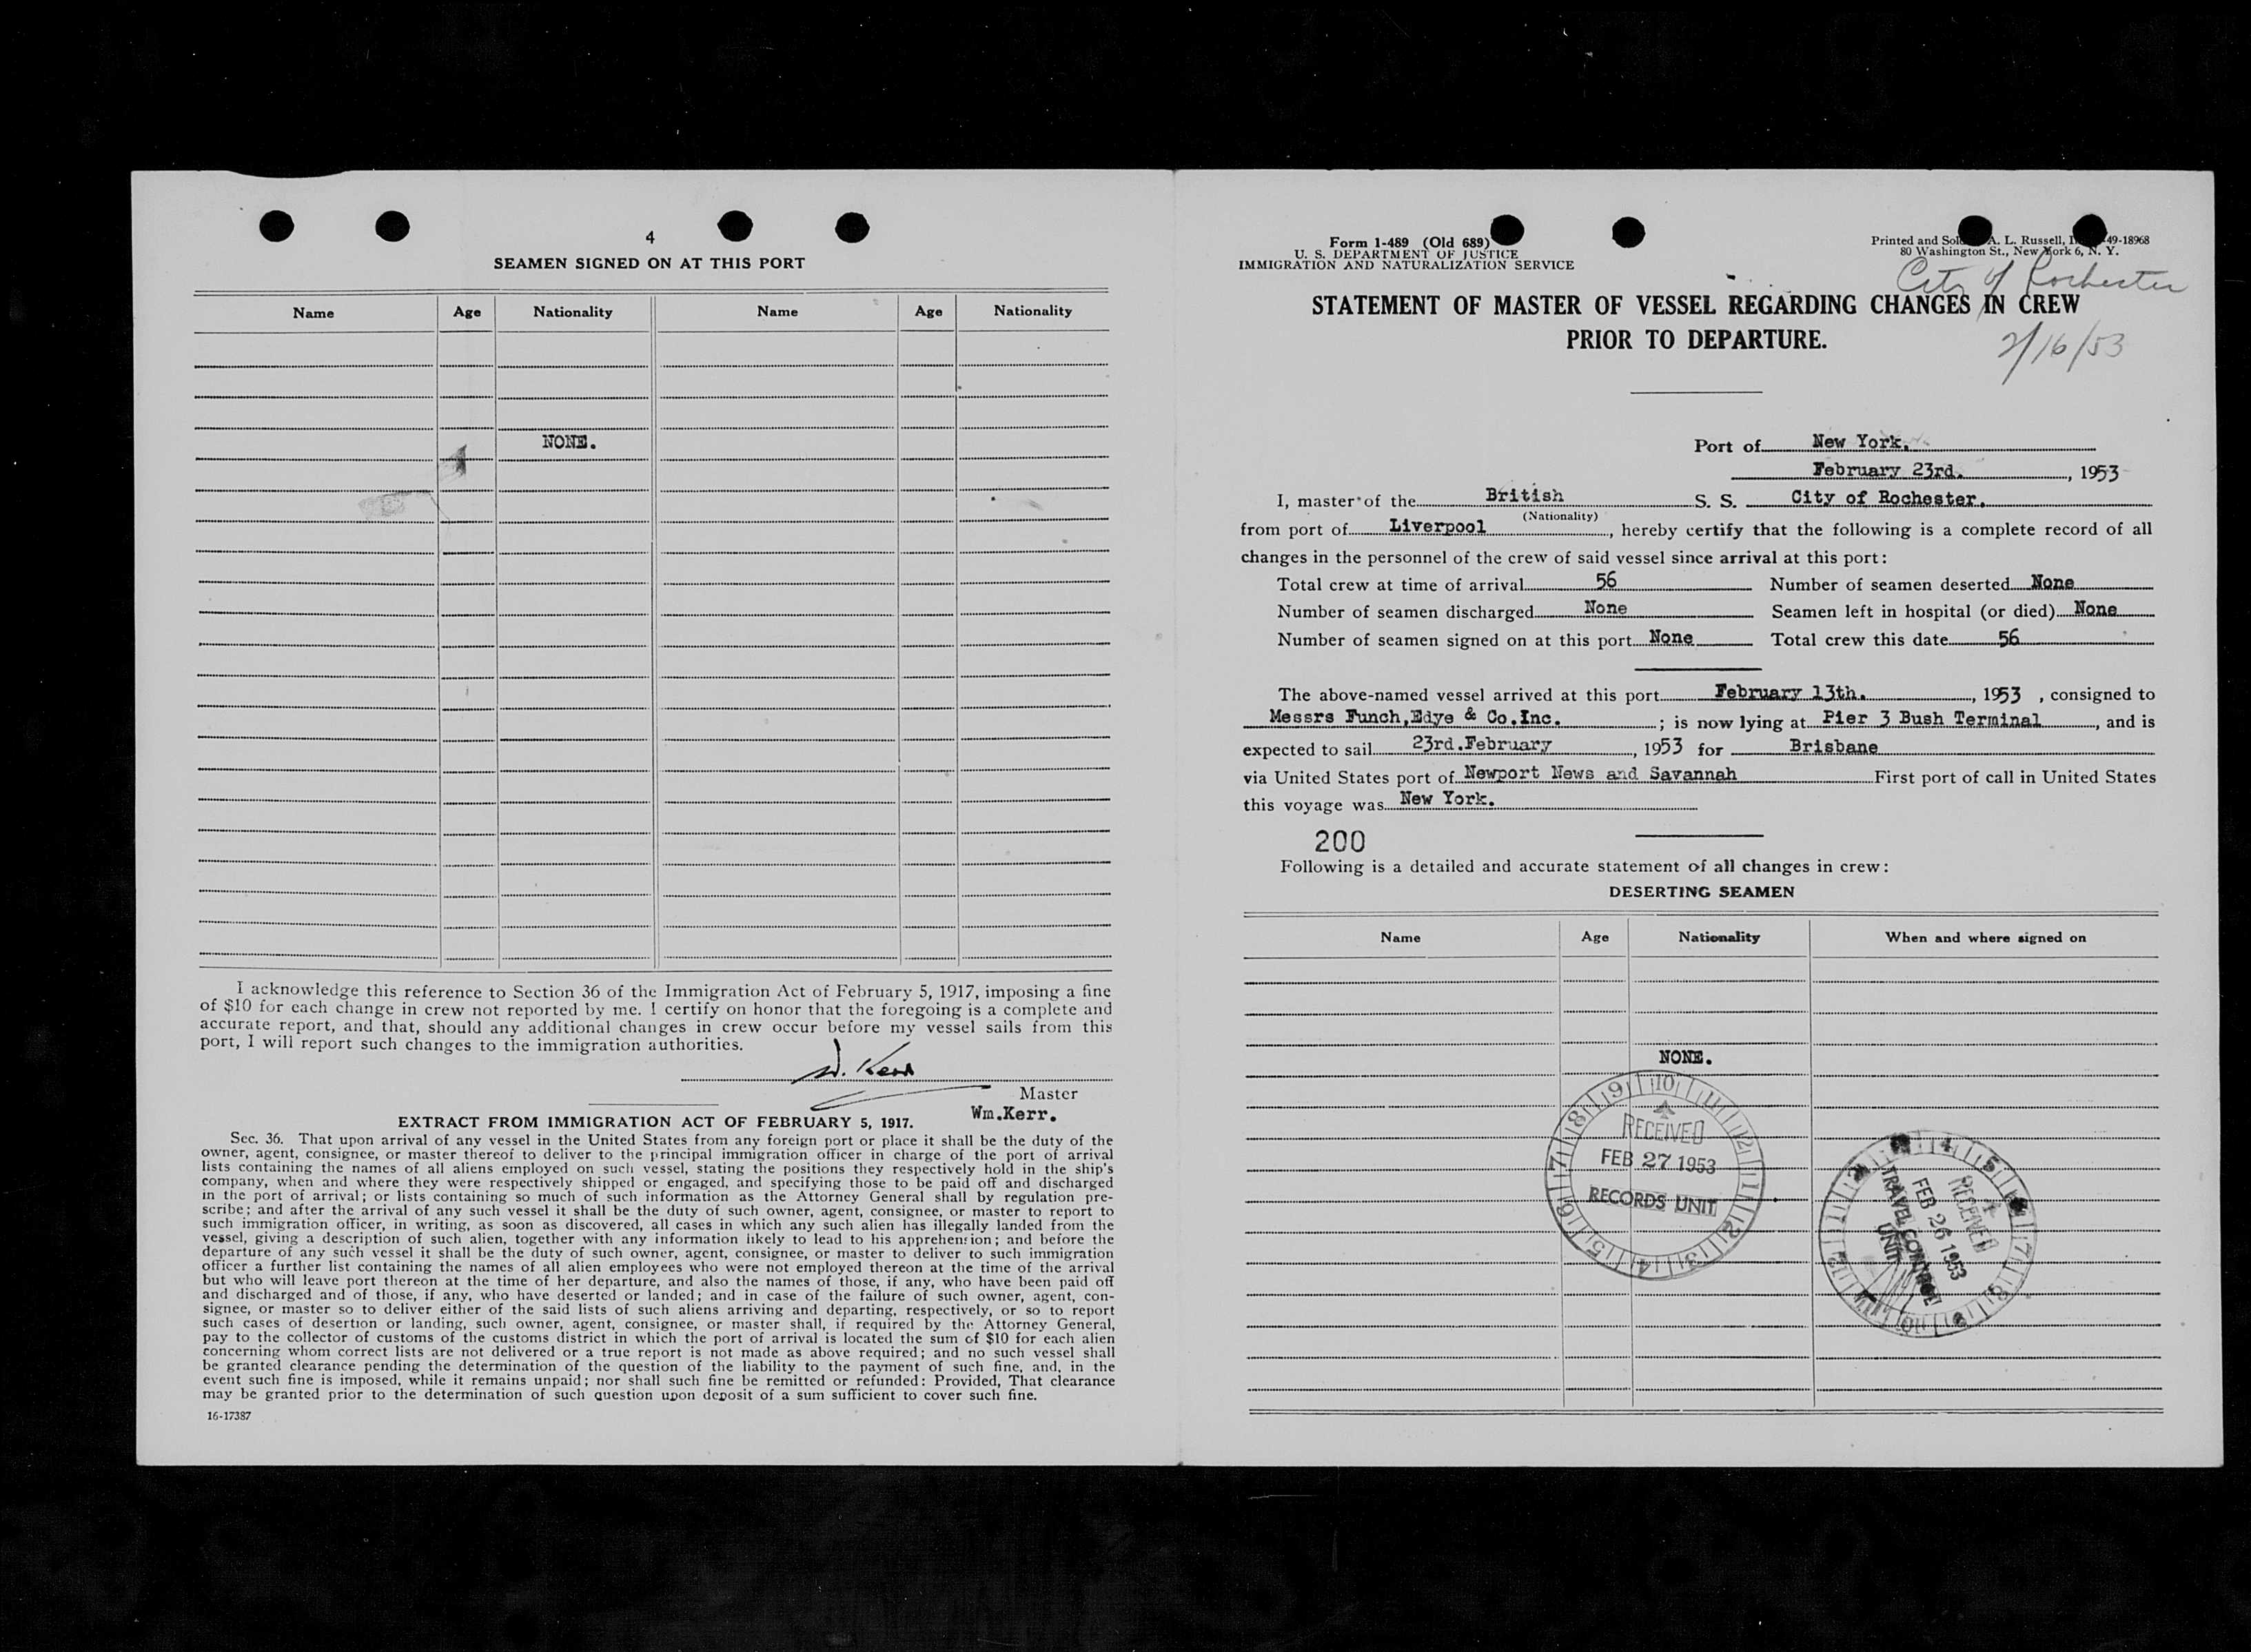 4
SEAMEN SIGNED ON AT THIS PORT
Name Age Nationality Name Age Nationality
NONE.
I acknowledge this reference to Section 36 of the Immigration Act of February 5, 1917, imposing a fine
of $10 for each change in crew not reported by me. I certify on honor that the foregoing is a complete and
accurate report, and that, should any additional changes in crew occur before my vessel sails from this
port, I will report such changes to the immigration authorities.
W. Kerr
Master
Wm.Kerr.
EXTRACT FROM IMMIGRATION ACT OF FEBRUARY 5, 1917.
Sec. 36. That upon arrival of any vessel in the United States from any foreign port or place it shall be the duty of the
owner, agent, consignee, or master thereof to deliver to the principal immigration officer in charge of the port of arrival
lists containing the names of all aliens employed on such vessel, stating the positions they respectively hold in the ship's
company, when and where they were respectively shipped or engaged, and specifying those to be paid off and discharged
in the port of arrival; or lists containing so much of such information as the Attorney General shall by regulation pre-
scribe; and after the arrival of any such vessel it shall be the duty of such owner, agent, consignee, or master to report to
such immigration officer, in writing, as soon as discovered, all cases in which any such alien has illegally landed from the
vessel, giving a description of such alien, together with any information likely to lead to his apprehension; and before the
departure of any such vessel it shall be the duty of such owner, agent, consignee, or master to deliver to such immigration
officer a further list containing the names of all alien employees who were not employed thereon at the time of the arrival
but who will leave port thereon at the time of her departure, and also the names of those, if any, who have been paid off
and discharged and of those, if any, who have deserted or landed; and in case of the failure of such owner, agent, con-
signee, or master so to deliver either of the said lists of such aliens arriving and departing, respectively, or so to report
such cases of desertion or landing, such owner, agent, consignee, or master shall, if required by the Attorney General,
pay to the collector of customs of the customs district in which the port of arrival is located the sum of $10 for each alien
concerning whom correct lists are not delivered or a true report is not made as above required; and no such vessel shall
be granted clearance pending the determination of the question of the liability to the payment of such fine, and, in the
event such fine is imposed, while it remains unpaid; nor shall such fine be remitted or refunded: Provided, That clearance
may be granted prior to the determination of such question upon deposit of a sum sufficient to cover such fine.
16-17387
Form 1-489 (Old 689)
U. S. DEPARTMENT OF JUSTICE
IMMIGRATION AND NATURALIZATION SERVICE
Printed and Sold A. L. Russell, 49-18968
80 Washington St., New York 6, N. Y.
City of Rochester
STATEMENT OF MASTER OF VESSEL REGARDING CHANGES IN CREW
PRIOR TO DEPARTURE.
2/16/53
Port of New York.
February 23rd., 1953
I, master of the British S. S. City of Rochester.
(Nationality)
from port of Liverpool, hereby certify that the following is a complete record of all
changes in the personnel of the crew of said vessel since arrival at this port:
Total crew at time of arrival 56 Number of seamen deserted None
Number of seamen discharged None Seamen left in hospital (or died) None
Number of seamen signed on at this port None Total crew this date 56
The above-named vessel arrived at this port February 13th., 1953 , consigned to
Messrs Funch,Edye & Co.Inc. ; is now lying at Pier 3 Bush Terminal, and is
expected to sail 23rd.February, 1953 for Brisbane
via United States port of Newport News and Savannah First port of call in United States
this voyage was New York.
200
Following is a detailed and accurate statement of all changes in crew:
DESERTING SEAMEN
Name Age Nationality When and where signed on
NONE.
RECEIVED
FEB 27 1953
RECORDS UNIT
RECEIVED
FEB 26 1953
TRAVEL CONTROL
UNIT